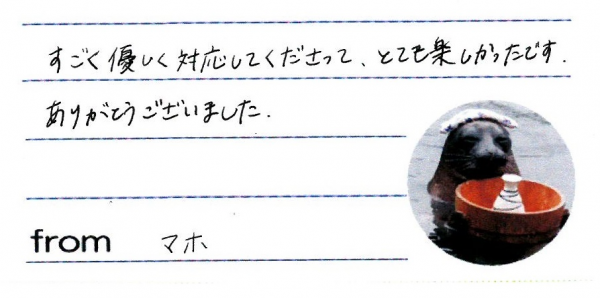 すごく優しく対応してくださって、とても楽しかったです.
ありがとうございました.
from マホ